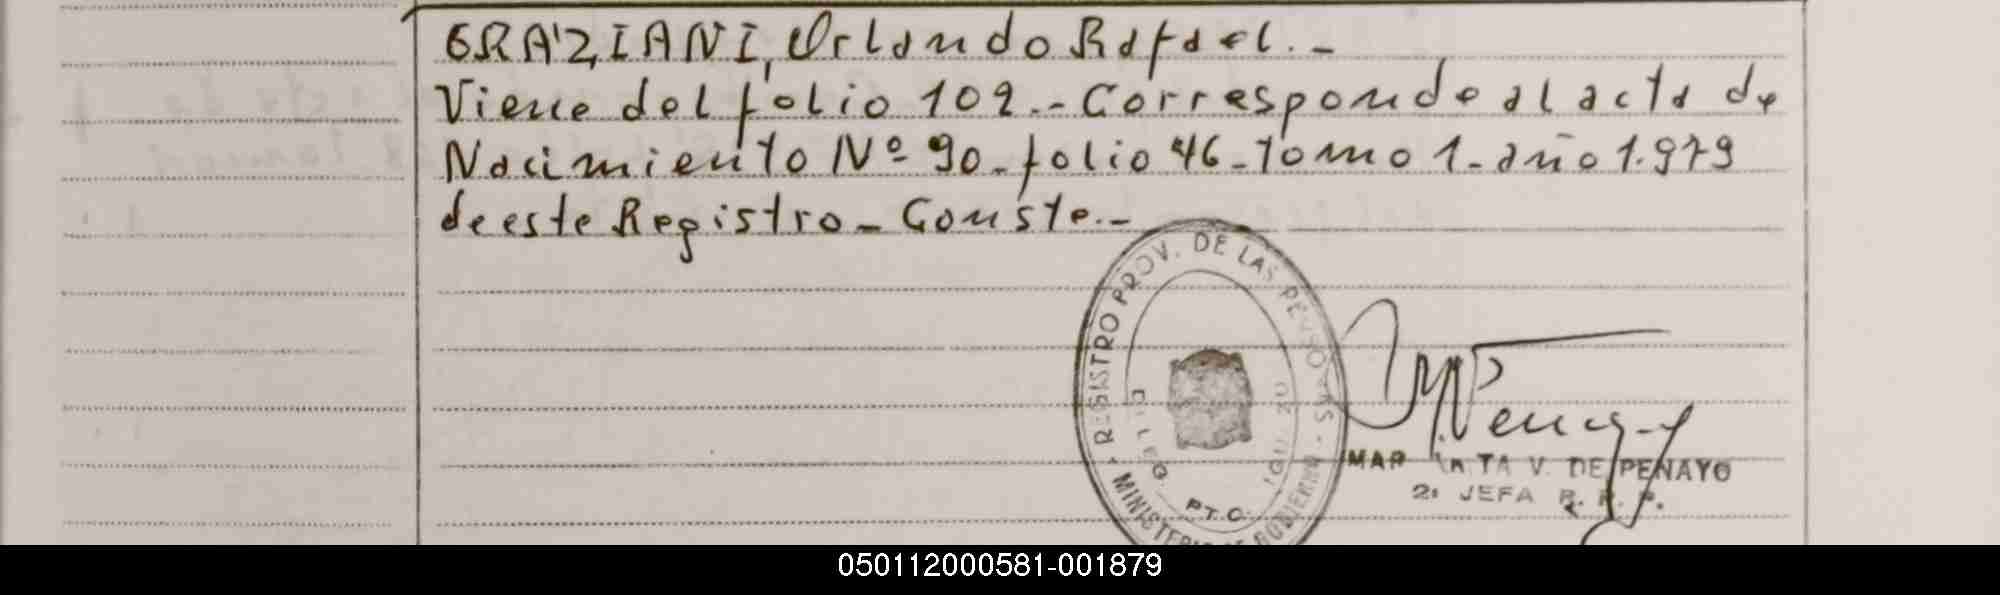 GRAZIANI, Orlando Rafael.-
Viene del folio 102.- Corresponde al acta de
Nacimiento Nº 90-folio 46-Tomo 1-año 1.979
de este Registro- Conste.-
REGISTRO PROV. DE LAS PERSONAS
MINISTERIO DE GOBIERNO
DELEG. PTO. IGUAZU
V. DE PENAYO
JEFA R. P. P.
050112000581-001879